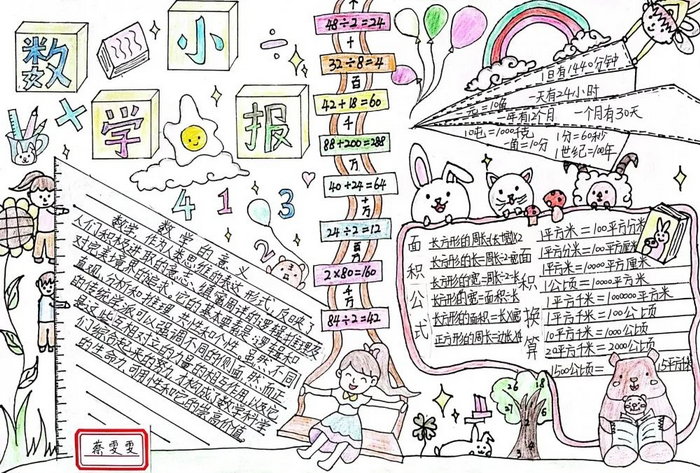 数
小
学
报
4 1 3
2
48÷2=24
十
32÷8=4
百
42+18=60
千
88+200=288
万
40+24=64
十万
24÷2=12
百万
2×80=160
千万
84÷2=42
1日有1440分钟
一天有24小时
一年有12个月
一个月有30天
10吨=1000千克
1分=60秒
一角=10分
1世纪=100年
数学的意义
数学,作为人类思维的表达形式,反映了
人们积极进取的意志、缜密周详的逻辑推理及
对完美境界的追求。它的基本要素是:逻辑和
直观、分析和推理、共性和个性。虽然不同
的传统学派可以强调不同的侧面,然而正
是这些互相对立的力量的相互作用,以及它
们综合起来的努力,才构成了数学科学
的生命力、可用性和它的崇高价值
蔡雯雯
面积公式
长方形的长=周长÷2-宽
长方形的宽=周长÷2-长
长方形的宽=面积÷长
长方形的面积=长×宽
正方形的周长=边长×4
面积换算
1平方米=100平方分米
1平方分米=100平方厘米
1平方米=10000平方厘米
1公顷=10000平方米
1平方千米=1000000平方米
1平方千米=100公顷
10平方千米=1000公顷
20平方千米=2000公顷
1500公顷=15平方千米
26 18
2 6